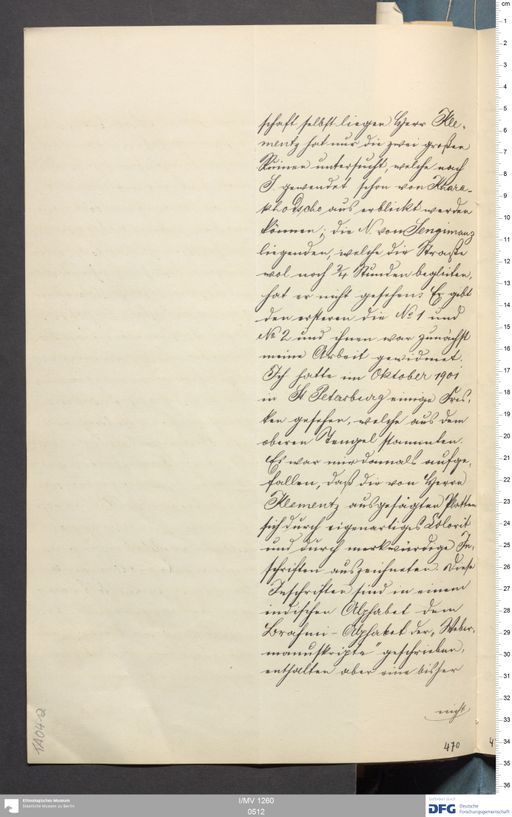 schaft selbst liegen Herr Kle-
mentz hat nur die zwei großen
Ruinen untersucht, welche nach
S. gewendet schon von Khara-
khodscho aus erblickt werden
können; die N. von Sengimauz
liegenden, welche die Straße
wol noch 3/4 Stunden begleiten,
hat er nicht gesehen. Er gibt
den ersteren die No 1 und
No 2 und ihnen war zunächst
meine Arbeit gewidmet.
Ich hatte im Oktober 1901
in St Petersburg einige Fres-
ken gesehen, welche aus dem
oberen Tempel stammten.
Es war mir damals aufge-
fallen, daß die von Herrn
Klementz ausgesägten Platten
sich durch eigenartiges Colorit
und durch merkwürdige In-
schriften auszeichneten. Diese
Inschriften sind in einem
indischen Alphabet dem
Brahmi-Alphabet der „Weber-
manuskripte" geschrieben,
enthalten aber eine bisher
nicht
470
TA04-2
Ethnologisches Museum
Staatliche Museen zu Berlin
I/MV 1260
0512
gefördert durch
DFG Deutsche
Forschungsgemeinschaft